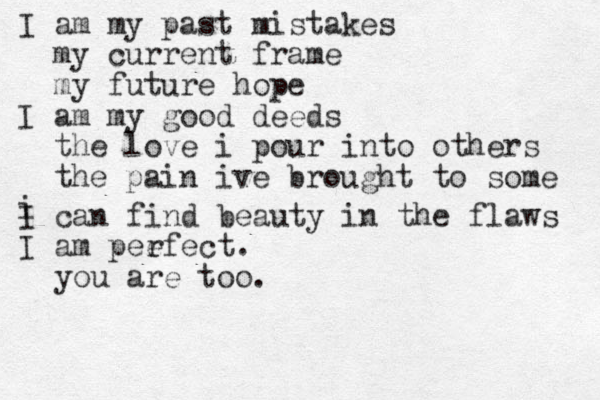 I am my past mistakes
my current frame
my future hope
I am my good deeds
the love i pour into others
the pain ive brought to some
I can find beauty in the flaws
I am perfect.
you are too.